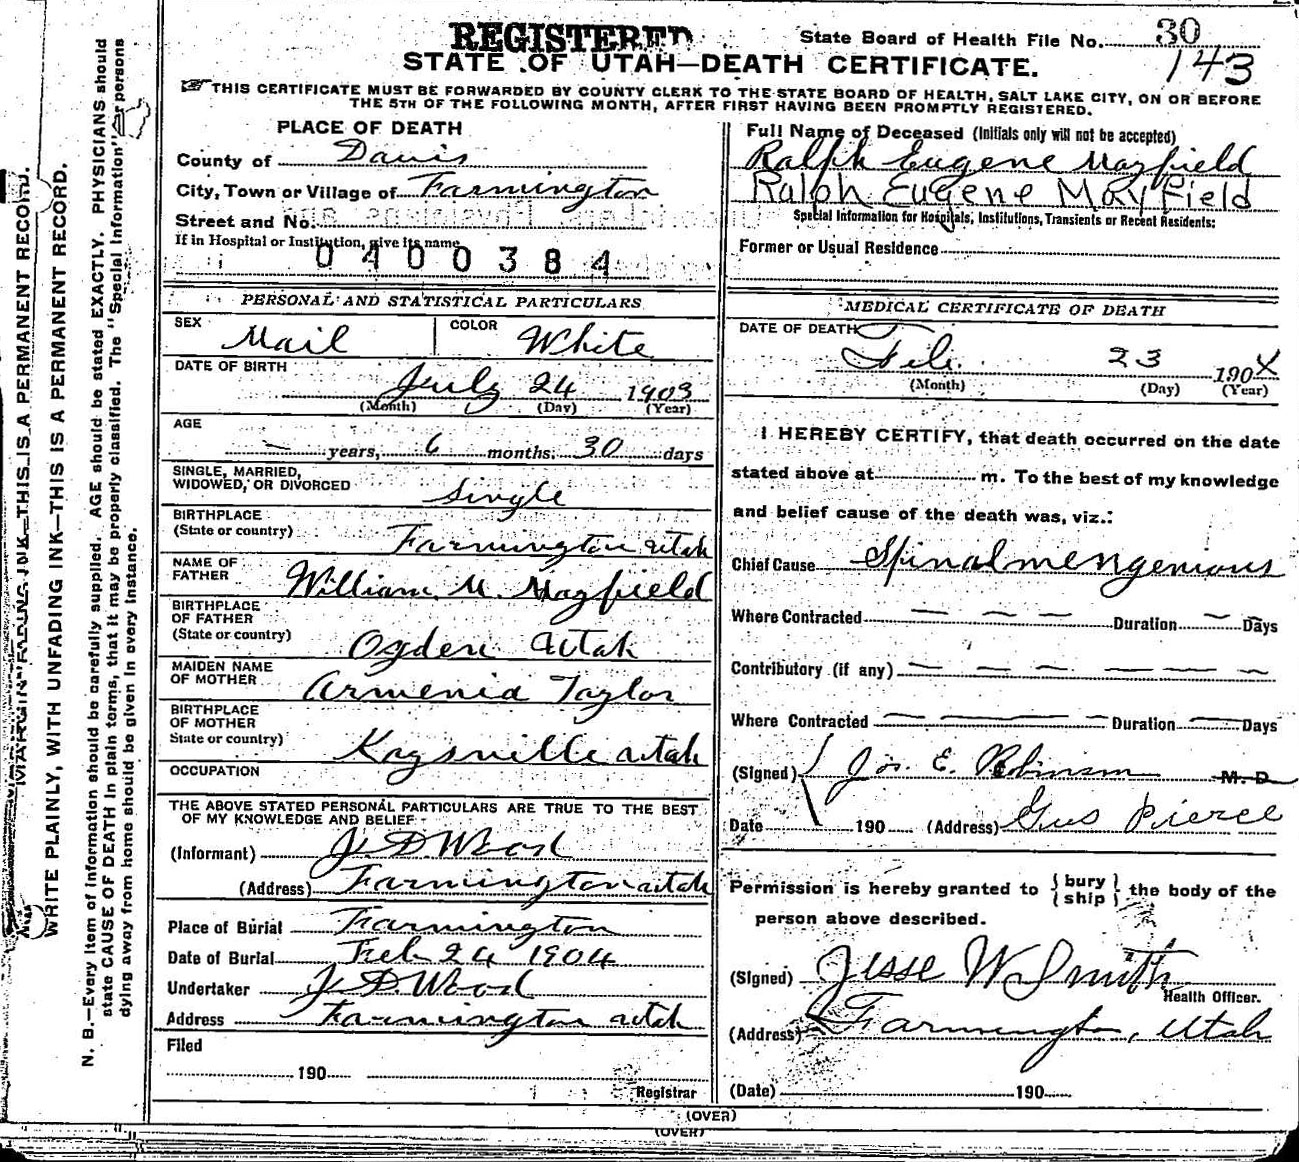 REGISTERED
State Board of Health File No. 30
143
STATE OF UTAH—DEATH CERTIFICATE.
THIS CERTIFICATE MUST BE FORWARDED BY COUNTY CLERK TO THE STATE BOARD OF HEALTH, SALT LAKE CITY, ON OR BEFORE
THE 5TH OF THE FOLLOWING MONTH, AFTER FIRST HAVING BEEN PROMPTLY REGISTERED.
PLACE OF DEATH
County of Davis
City, Town or Village of Farmington
Street and No.
If in Hospital or Institution, give its name
0400384
PERSONAL AND STATISTICAL PARTICULARS
SEX Mail COLOR White
DATE OF BIRTH July 24 1903
(Month) (Day) (Year)
AGE
— years, 6 months, 30 days
SINGLE, MARRIED,
WIDOWED, OR DIVORCED Single
BIRTHPLACE
(State or country) Farmington Utah
NAME OF
FATHER William M. Mayfield
BIRTHPLACE
OF FATHER
(State or country) Ogden Utah
MAIDEN NAME
OF MOTHER Armenia Taylor
BIRTHPLACE
OF MOTHER
State or country) Kaysville Utah
OCCUPATION
THE ABOVE STATED PERSONAL PARTICULARS ARE TRUE TO THE BEST
OF MY KNOWLEDGE AND BELIEF
(Informant) J. D. Wood
(Address) Farmington Utah
Place of Burial Farmington
Date of Burial Feb 24 1904
Undertaker J. D. Wood
Address Farmington Utah
Filed
190
Registrar
Full Name of Deceased (Initials only will not be accepted)
Ralph Eugene Mayfield
Ralph Eugene Mayfield
Special Information for Hospitals, Institutions, Transients or Recent Residents:
Former or Usual Residence
MEDICAL CERTIFICATE OF DEATH
DATE OF DEATH
Feb. 23 1904
(Month) (Day) (Year)
I HEREBY CERTIFY, that death occurred on the date
stated above at m. To the best of my knowledge
and belief cause of the death was, viz.:
Chief Cause Spinalmengenious
Where Contracted — — — Duration — Days
Contributory (if any) — — — — — —
Where Contracted — — — Duration — Days
(Signed) Jos. E. Robinson M. D.
Date 190 (Address) Gus Pierce
Permission is hereby granted to { bury } the body of the
{ ship }
person above described.
(Signed) Jesse W Smith
Health Officer.
(Address) Farmington, Utah
(Date) 190
(OVER)
(OVER)
MARGIN FADING INK—THIS IS A PERMANENT RECORD.
WRITE PLAINLY, WITH UNFADING INK—THIS IS A PERMANENT RECORD.
N. B.—Every item of information should be carefully supplied. AGE should be stated EXACTLY. PHYSICIANS should
state CAUSE OF DEATH in plain terms, that it may be properly classified. The "Special Information" of persons
dying away from home should be given in every instance.